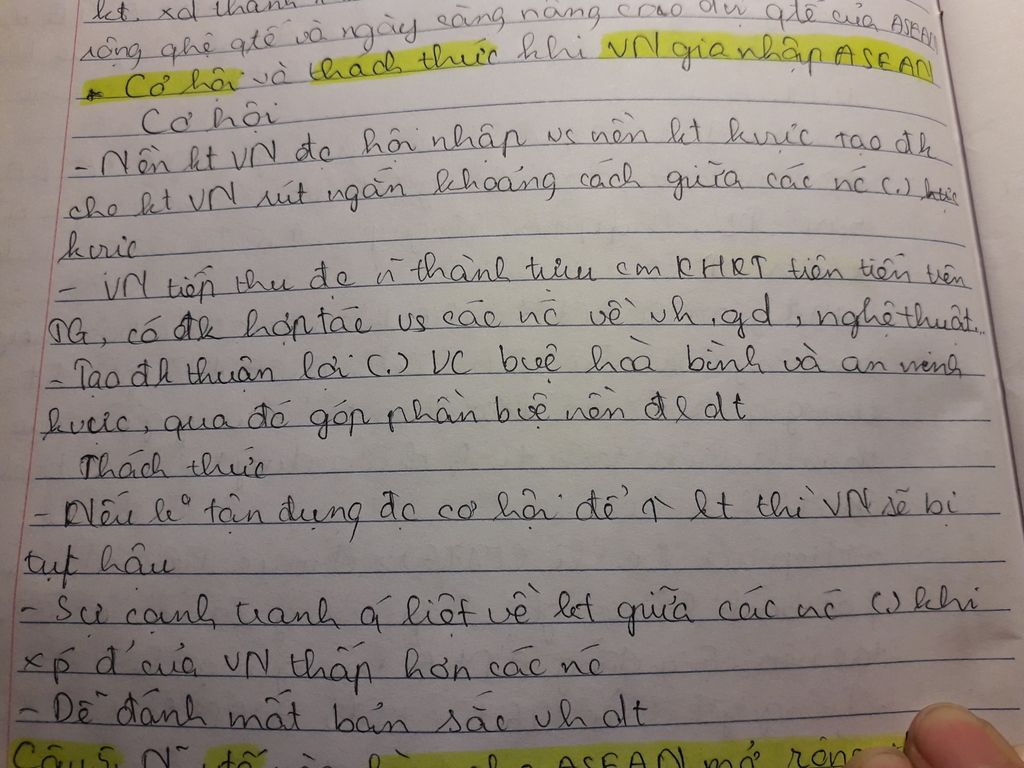 kt. xd thành
rộng ghệ qtế và ngày càng nâng cao đvị qtế của ASEAN
* Cơ hội và thách thức khi VN gia nhập ASEAN
Cơ hội
- Nền kt VN đc hội nhập vs nền kt kvực tạo đk
cho kt VN rút ngắn khoảng cách giữa các nc (.)
kvực
- VN tiếp thu đc ~ thành tựu cm KHKT tiên tiến trên
TG, có đk hợp tác vs các nc về vh, gd, nghệ thuật...
- Tạo đk thuận lợi (.) VC bvệ hoà bình và an ninh
kvực, qua đó góp phần bvệ nền đl dt
Thách thức
- Nếu k° tận dụng đc cơ hội để ↑ kt thì VN sẽ bị
tụt hậu
- Sự cạnh tranh q' liệt về kt giữa các nc (.) khi
xp' đ' của VN thấp hơn các nc
- Dễ đánh mất bản sắc vh dt
Câu 5. ASEAN mở rộng